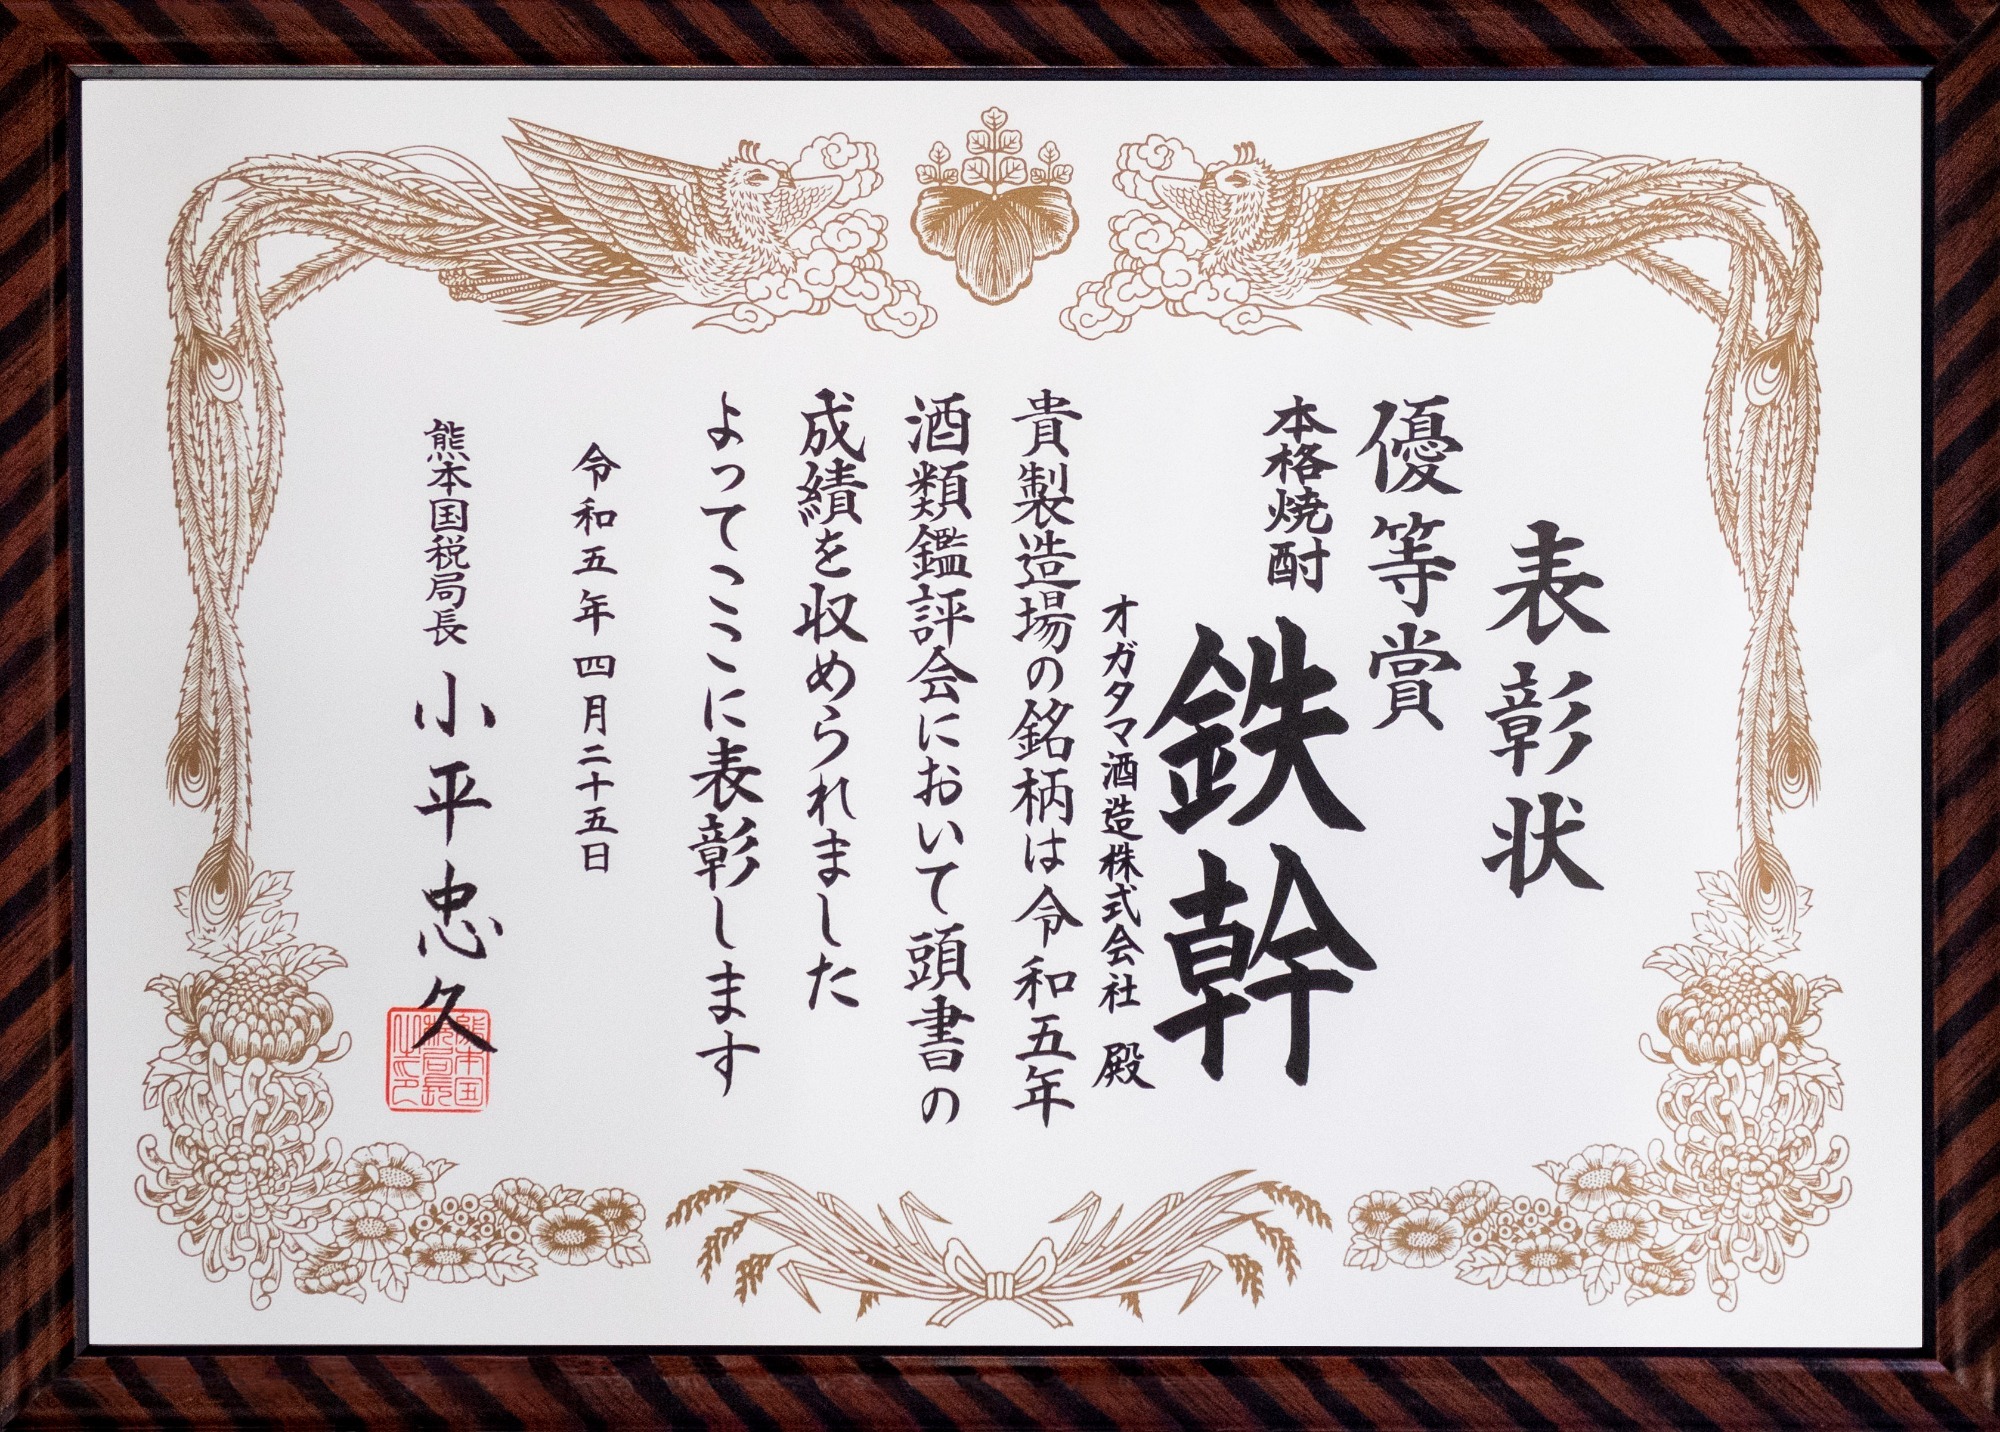 表彰状
優等賞
本格焼酎
鉄幹
オガタマ酒造株式会社 殿
貴製造場の銘柄は令和五年
酒類鑑評会において頭書の
成績を収められました
よってここに表彰します
令和五年四月二十五日
熊本国税局長 小平忠久
熊本国税局長之印